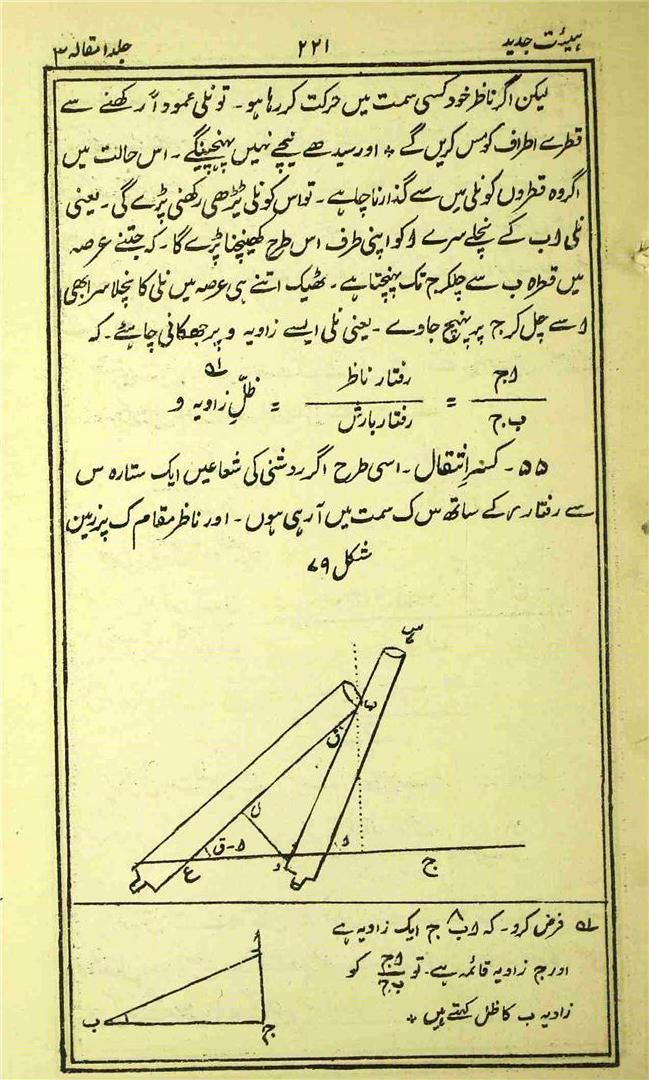 ہیئت جدید ۲۲۱ جلد ا مقالہ ۳
لیکن اگر ناظر خود کسی سمت میں حرکت کر رہا ہو۔ تو نلی عموداً رکھنے سے
قطرے اطراف کو مس کریں گے * اور سیدھے نیچے نہیں پہنچینگے۔ اس حالت میں
اگر وہ قطروں کو نلی میں سے گذارنا چاہے۔ تو اس کو نلی ٹیڑھی رکھنی پڑے گی۔ یعنی
نلی اب کے نچلے سرے ا کو اپنی طرف اس طرح کھینچنا پڑے گا۔ کہ جتنے عرصہ
میں قطرہ ب سے چلکر ج تک پہنچتا ہے۔ ٹھیک اتنے ہی عرصہ میں نلی کا نچلا سرا بھی
ا سے چل کر ج پر پہنچ جاوے۔ یعنی نلی ایسے زاویہ و پر جھکانی چاہئے۔ کہ
اج / ب ج = رفتار ناظر / رفتار بارش = ظلِّ زاویہ و
۵۵۔ کسر انتقال۔ اسی طرح اگر روشنی کی شعاعیں ایک ستارہ س
سے رفتار ر کے ساتھ س ک سمت میں آ رہی ہوں۔ اور ناظر مقام ک پر زمین
شکل ۷۹
س
ق
ل
ق-ہ
ع
ج
فرض کرو۔ کہ اب ج ایک زاویہ ہے
اور ج زاویہ قائمہ ہے۔ تو اج / ب ج کو
زاویہ ب کا ظل کہتے ہیں *
ا
ب
ج